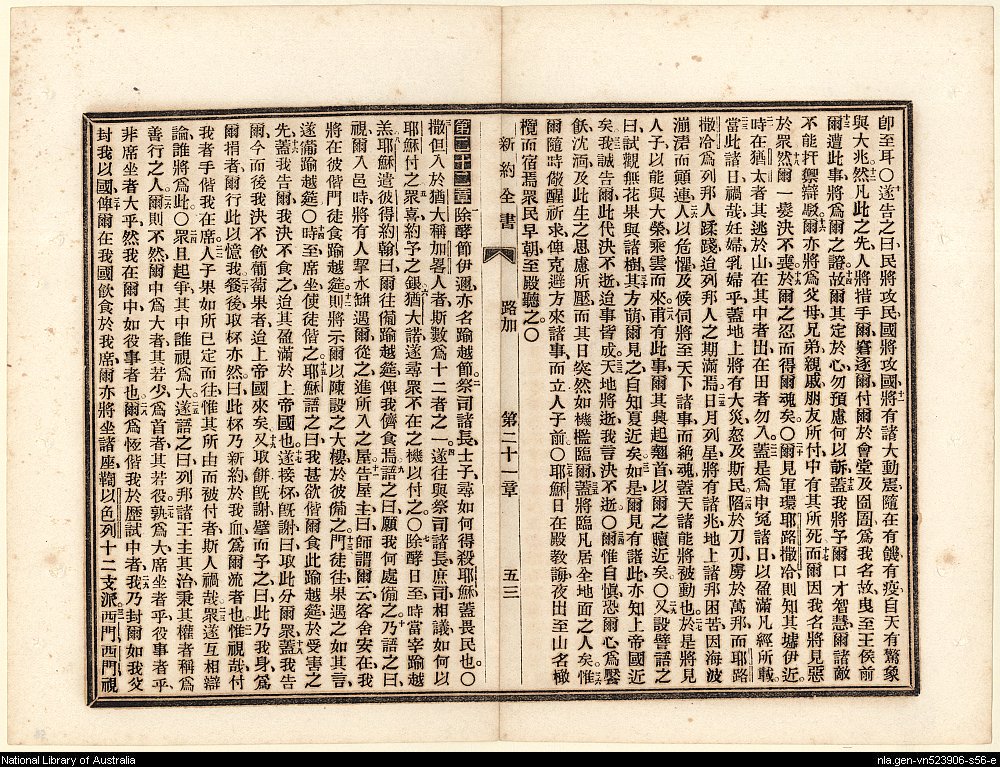 卽至耳〇遂告之曰民將攻民國將攻國將有諸大動震隨在有饑有疫自天有驚象
與大兆然凡此之先人將措手爾窘逐爾付爾於會堂及囹圄爲我名故曳至王侯前
爾遭此事將爲爾之證故爾其定於心勿預慮何以訴蓋我將予爾口才智慧爾諸敵
不能扞禦辯駁爾亦將爲父母兄弟親戚朋友所付中有其所死而爾因我名將見惡
於眾然爾一髮決不喪於爾之忍而得爾魂矣〇爾見軍環耶路撒冷則知其墟伊近
時在猶太者其逃於山在其中者出在田者勿入蓋是爲申冤諸日以盈滿凡經所載
當此諸日禍哉妊婦乳婦乎蓋地上將有大災怒及斯民陷於刀刃虜於萬邦而耶路
撒冷爲列邦人蹂踐迨列邦人之期滿焉日月列星將有諸兆地上諸邦困苦因海波
澎湃而顚連人以危懼及候伺將至天下諸事而絶魂蓋天諸能將被動也於是將見
人子以能與大榮乘雲而來甫有此事爾其興起翹首以爾之贖近矣〇又設譬語之
曰試觀無花果與諸樹其方萌爾見之自知夏近矣如是爾見有諸此亦知上帝國近
矣我誠告爾此代決不逝迨事皆成天地將逝我言決不逝〇爾惟自慎恐爾心爲饜
飫沈湎及此生之思慮所壓而其日突然如機檻臨爾蓋將臨凡居全地面之人矣惟
爾隨時儆醒祈求俾克避方來諸事而立人子前〇耶穌日在殿教誨夜出至山名橄
欖而宿焉眾民早朝至殿聽之〇
新約全書 路加 第二十一章 五三
第二十二章除酵節伊邇亦名踰越節祭司諸長士子尋如何得殺耶穌蓋畏民也〇
撒但入於猶大稱加畧人者斯數爲十二者之一遂往與祭司諸長庶司相議如何以
耶穌付之眾喜約予之銀猶大諾遂尋眾不在之機以付之〇除酵日至時當宰踰越
羔耶穌遣彼得約翰曰爾往備踰越筵俾我儕食焉語之曰願我何處備之乃語之曰
視爾入邑時將有人挈水缾遇爾從之進所入之屋告屋主曰師謂爾云客舍安在我
將在彼偕門徒食踰越筵則將示爾以陳設之大樓於彼備之門徒往果遇之如其言
遂備踰越筵〇時至席坐使徒偕之耶穌語之曰我甚欲偕爾食此踰越筵於受害之
先蓋我告爾我決不食之迨其盈滿於上帝國也遂接杯旣謝曰取此分爾眾蓋我告
爾今而後我決不飲葡萄果者迨上帝國來矣又取餅旣謝擘而予之曰此乃我身爲
爾捐者爾行此以憶我餐後取杯亦然曰此杯乃新約於我血爲爾流者也惟視哉付
我者手偕我在席人子果如所已定而往惟其所由而被付者斯人禍哉眾遂互相辯
論誰將爲此〇眾且起爭其中誰視爲大遂語之曰列邦諸王主其治秉其權者稱爲
善行之人爾則不然爾中爲大者其若少爲首者其若役孰爲大席坐者乎役事者乎
非席坐者大乎然我在爾中如役事者也爾爲恆偕我於歷試中者我乃封爾如我父
封我以國俾爾在我國飲食於我席爾亦將坐諸座鞫以色列十二支派西門西門視
National Library of Australia
nla.gen-vn523906-s56-e